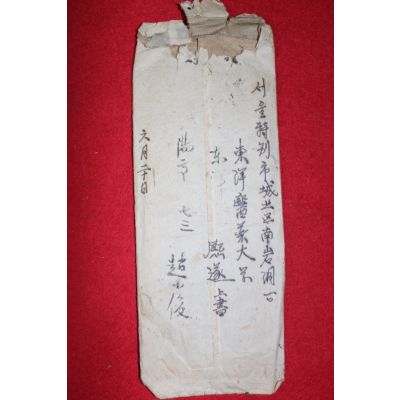 서울特別市城北区南岩洞一〇
東洋醫藥大学
东
熙遂 上書
陽 七三
趙 俊
六月二十日